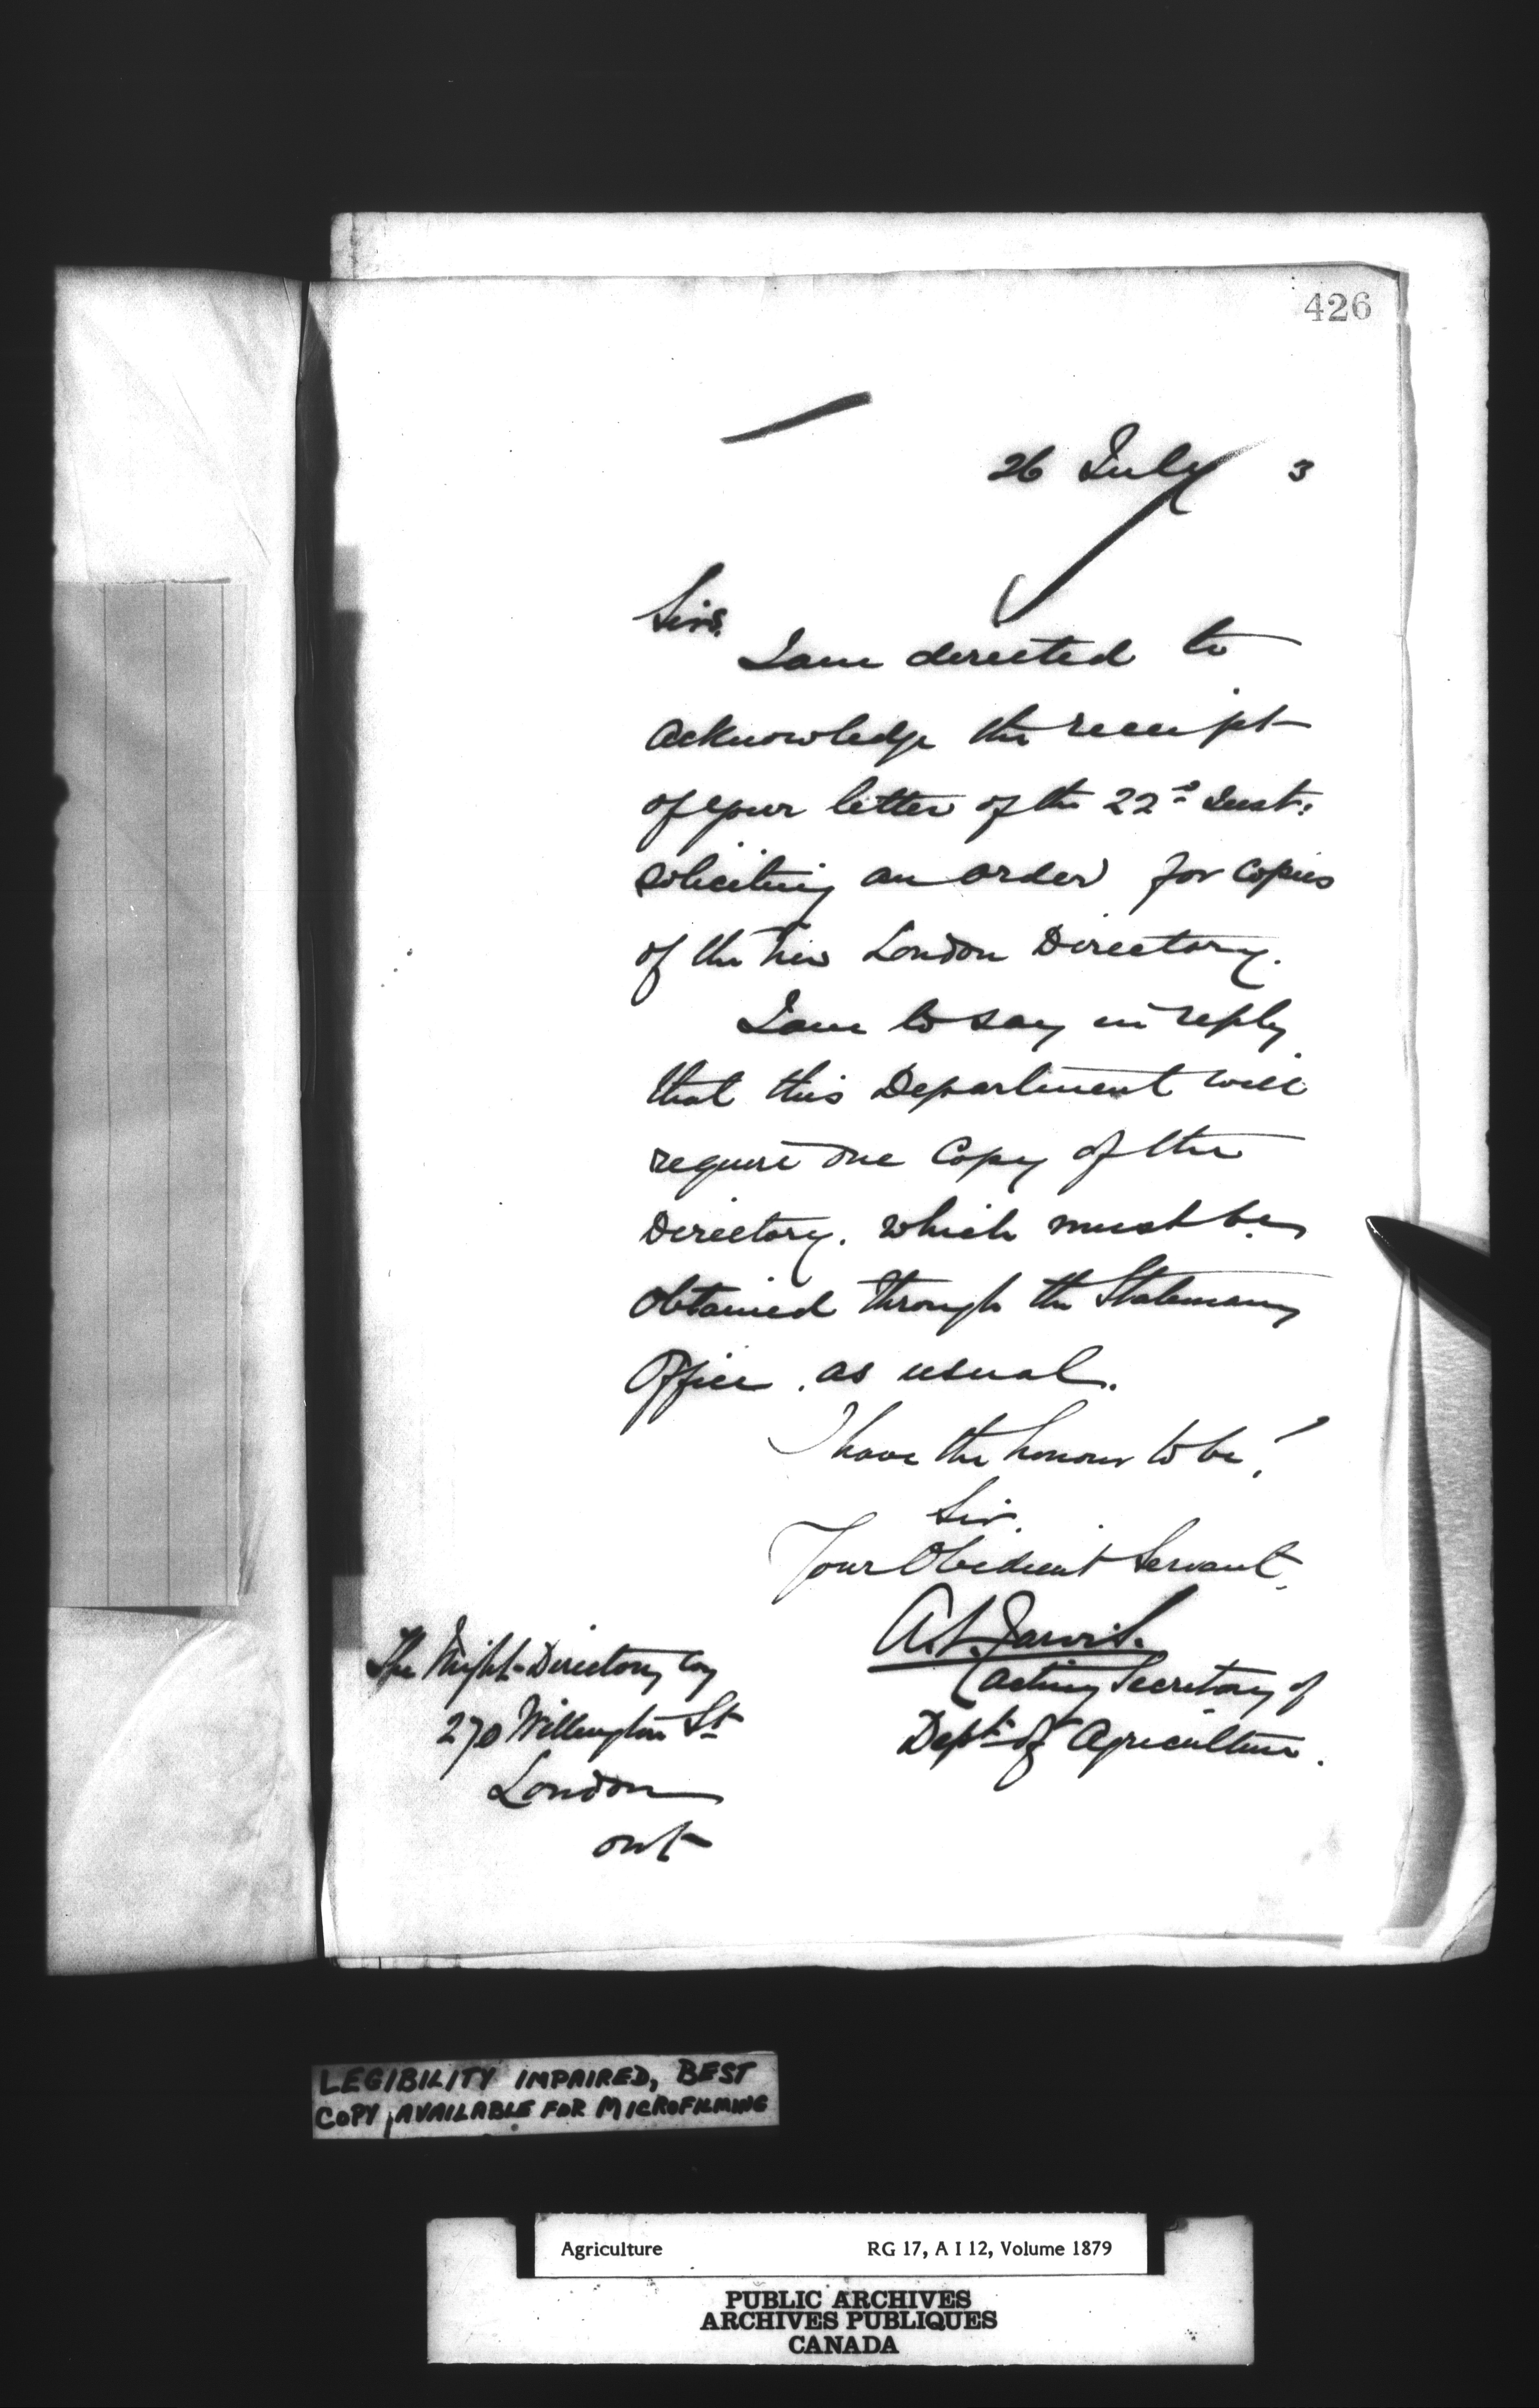 426
26 July 3
Sirs,
I am directed to
acknowledge the receipt
of your letter of the 22d Inst:
soliciting an order for copies
of the new London Directory.
I am to say in reply
that this Department will
require one Copy of the
Directory. which must be
obtained through the Stationary
Office. as usual.
I have the honour to be,
Sir.
Your Obedient Servant,
A.L. Jarvis.
acting Secretary of
Dept. of Agriculture.
The Might Directory Coy
270 Wellington St
London
ont
LEGIBILITY IMPAIRED, BEST
COPY AVAILABLE FOR MICROFILMING
Agriculture RG 17, A I 12, Volume 1879
PUBLIC ARCHIVES
ARCHIVES PUBLIQUES
CANADA